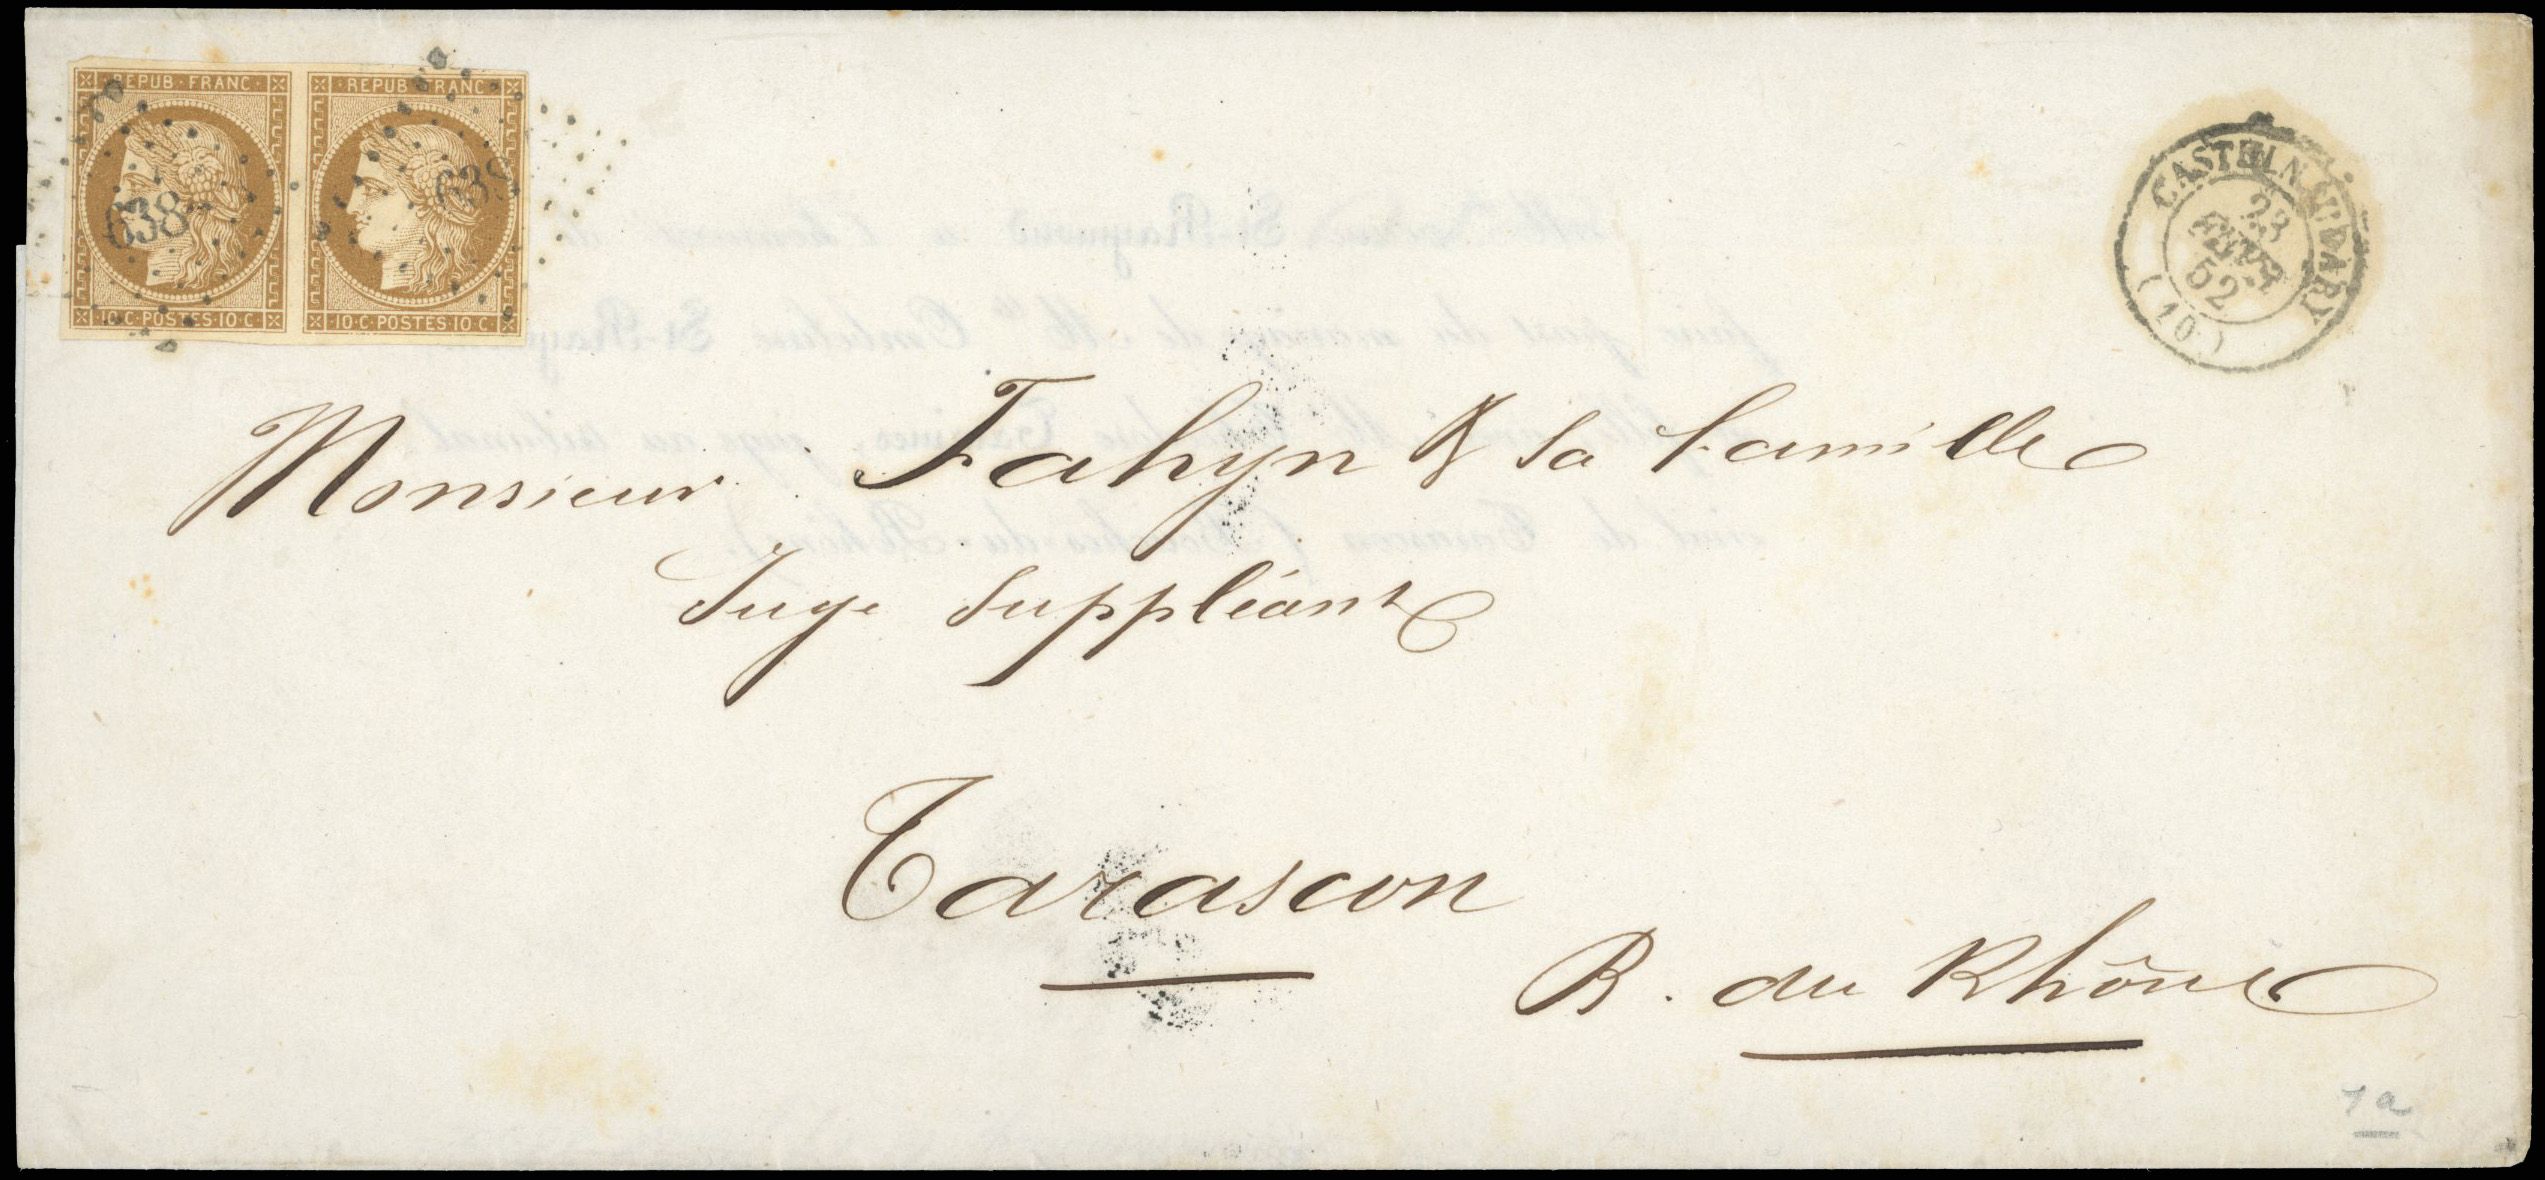 REPUB · FRANC ·
· REPUB FRANC ·
638
638
· 10 · C · POSTES · 10 · C ·
· 10 · C · POSTES 10 · C ·
CASTELNAUDARY
23
52
(10)
Monsieur Fahyn & sa famille
Juge Suppléant
Tarascon
B. du Rhône
1a